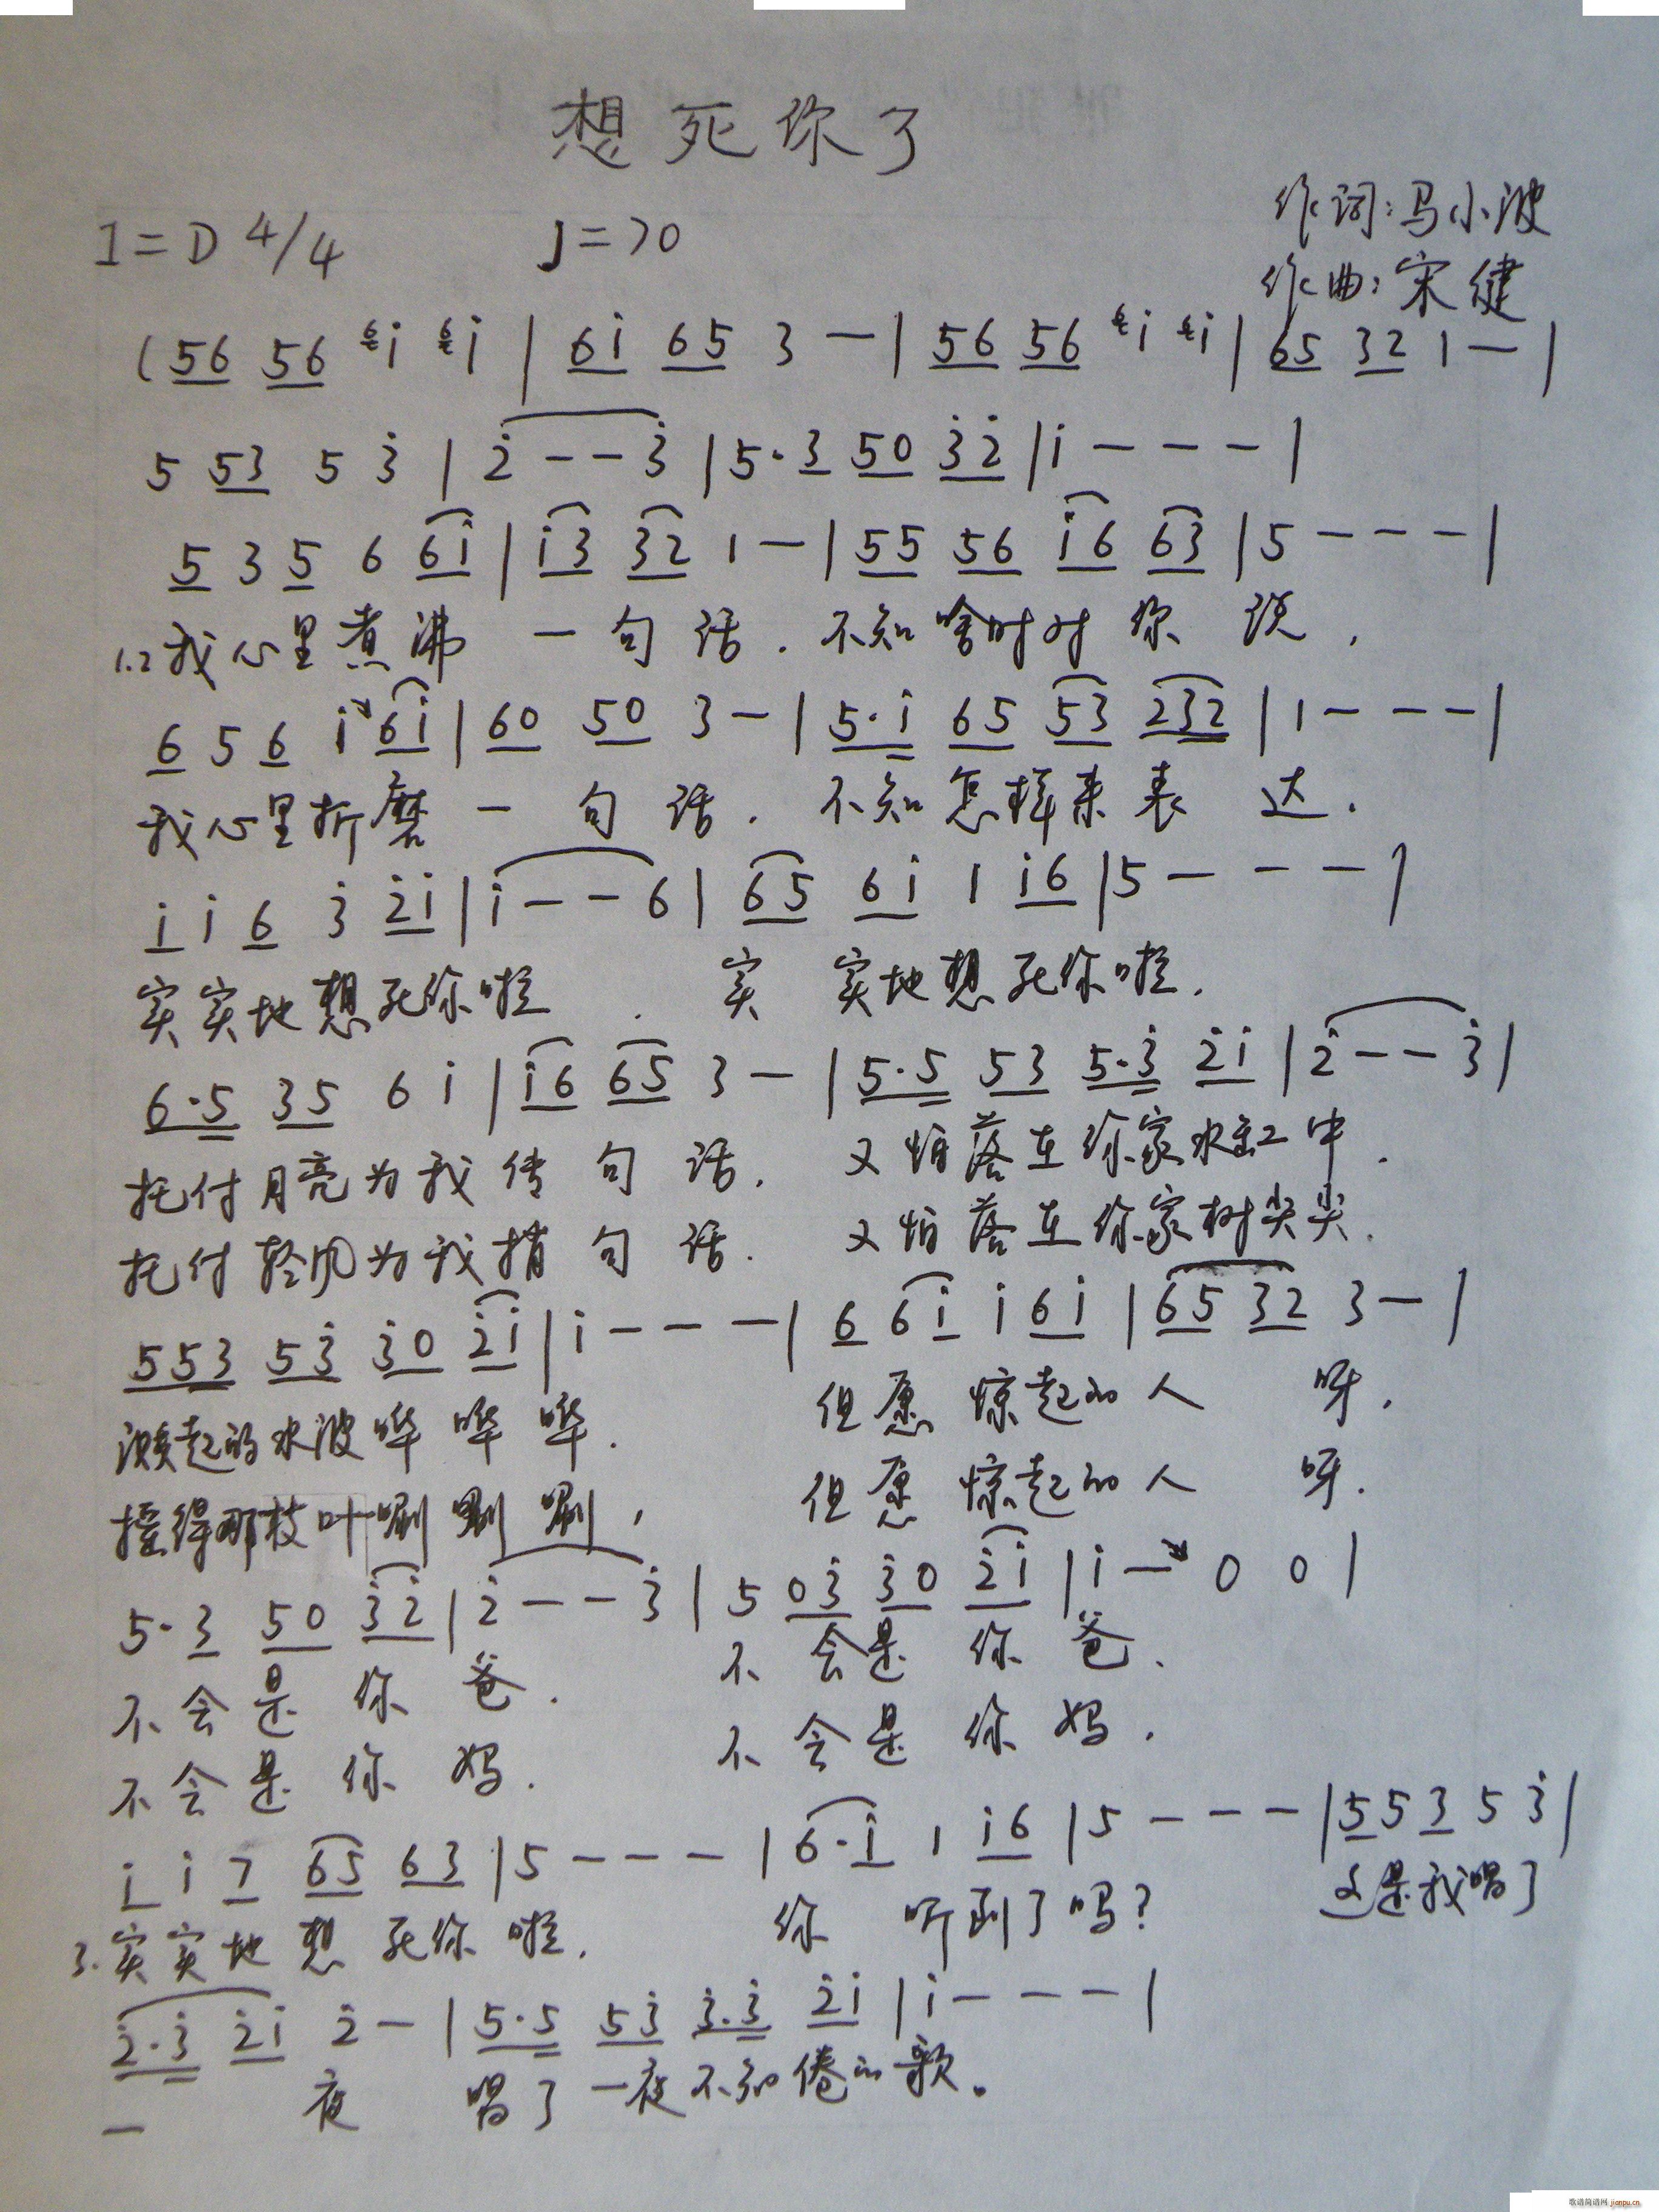 想死你了
作词:马小波
1=D 4/4 ♩=70
作曲:宋健
(56 56 ⁶i ⁶i | 6i 65 3 — | 56 56 ⁶i ⁶i | 65 32 1 — |
5 53 5 3̇ | 2̇ — — 3̇ | 5·3 50 3̇2̇ | i — — — |
5 3 5 6 6i | i3 32 1 — | 55 56 i6 63 | 5 — — — |
1.2 我心里煮沸 一句话. 不知啥时对你说,
6 5 6 i 6i | 60 50 3 — | 5·i 65 53 232 | 1 — — — |
我心里折磨一句话. 不知怎样来表达.
i i 6 3̇ 2̇i | i — — 6 | 65 6i 1 i6 | 5 — — — |
实实地想死你啦. 实 实地想死你啦.
6·5 35 6 i | i6 65 3 — | 5·5 53 5·3̇ 2̇i | 2̇ — — 3̇ |
托付月亮为我传句话. 又怕落在你家水缸中.
托付轻风为我捎句话. 又怕落在你家树尖尖.
553 53̇ 3̇0 2̇i | i — — — | 6 6i i 6i | 65 32 3 — |
溅起的水波哗哗哗. 但愿惊起的人 呀.
摇得那枝叶唰唰唰, 但愿惊起的人 呀.
5·3 50 3̇2̇ | 2̇ — — 3̇ | 5 03̇ 3̇0 2̇i | i — 0 0 |
不会是你爸. 不会是你爸.
不会是你妈. 不会是你妈.
i i 7 65 63 | 5 — — — | 6·i 1 i6 | 5 — — — | 5 5 3 5 3̇ |
3.实实地想死你啦. 你 听到了吗? 这是我唱了
2̇·3̇ 2̇i 2̇ — | 5·5 53̇ 3̇·3̇ 2̇i | i — — — |
一 夜 唱了一夜不知倦的歌。
歌谱简谱网 jianpu.cn